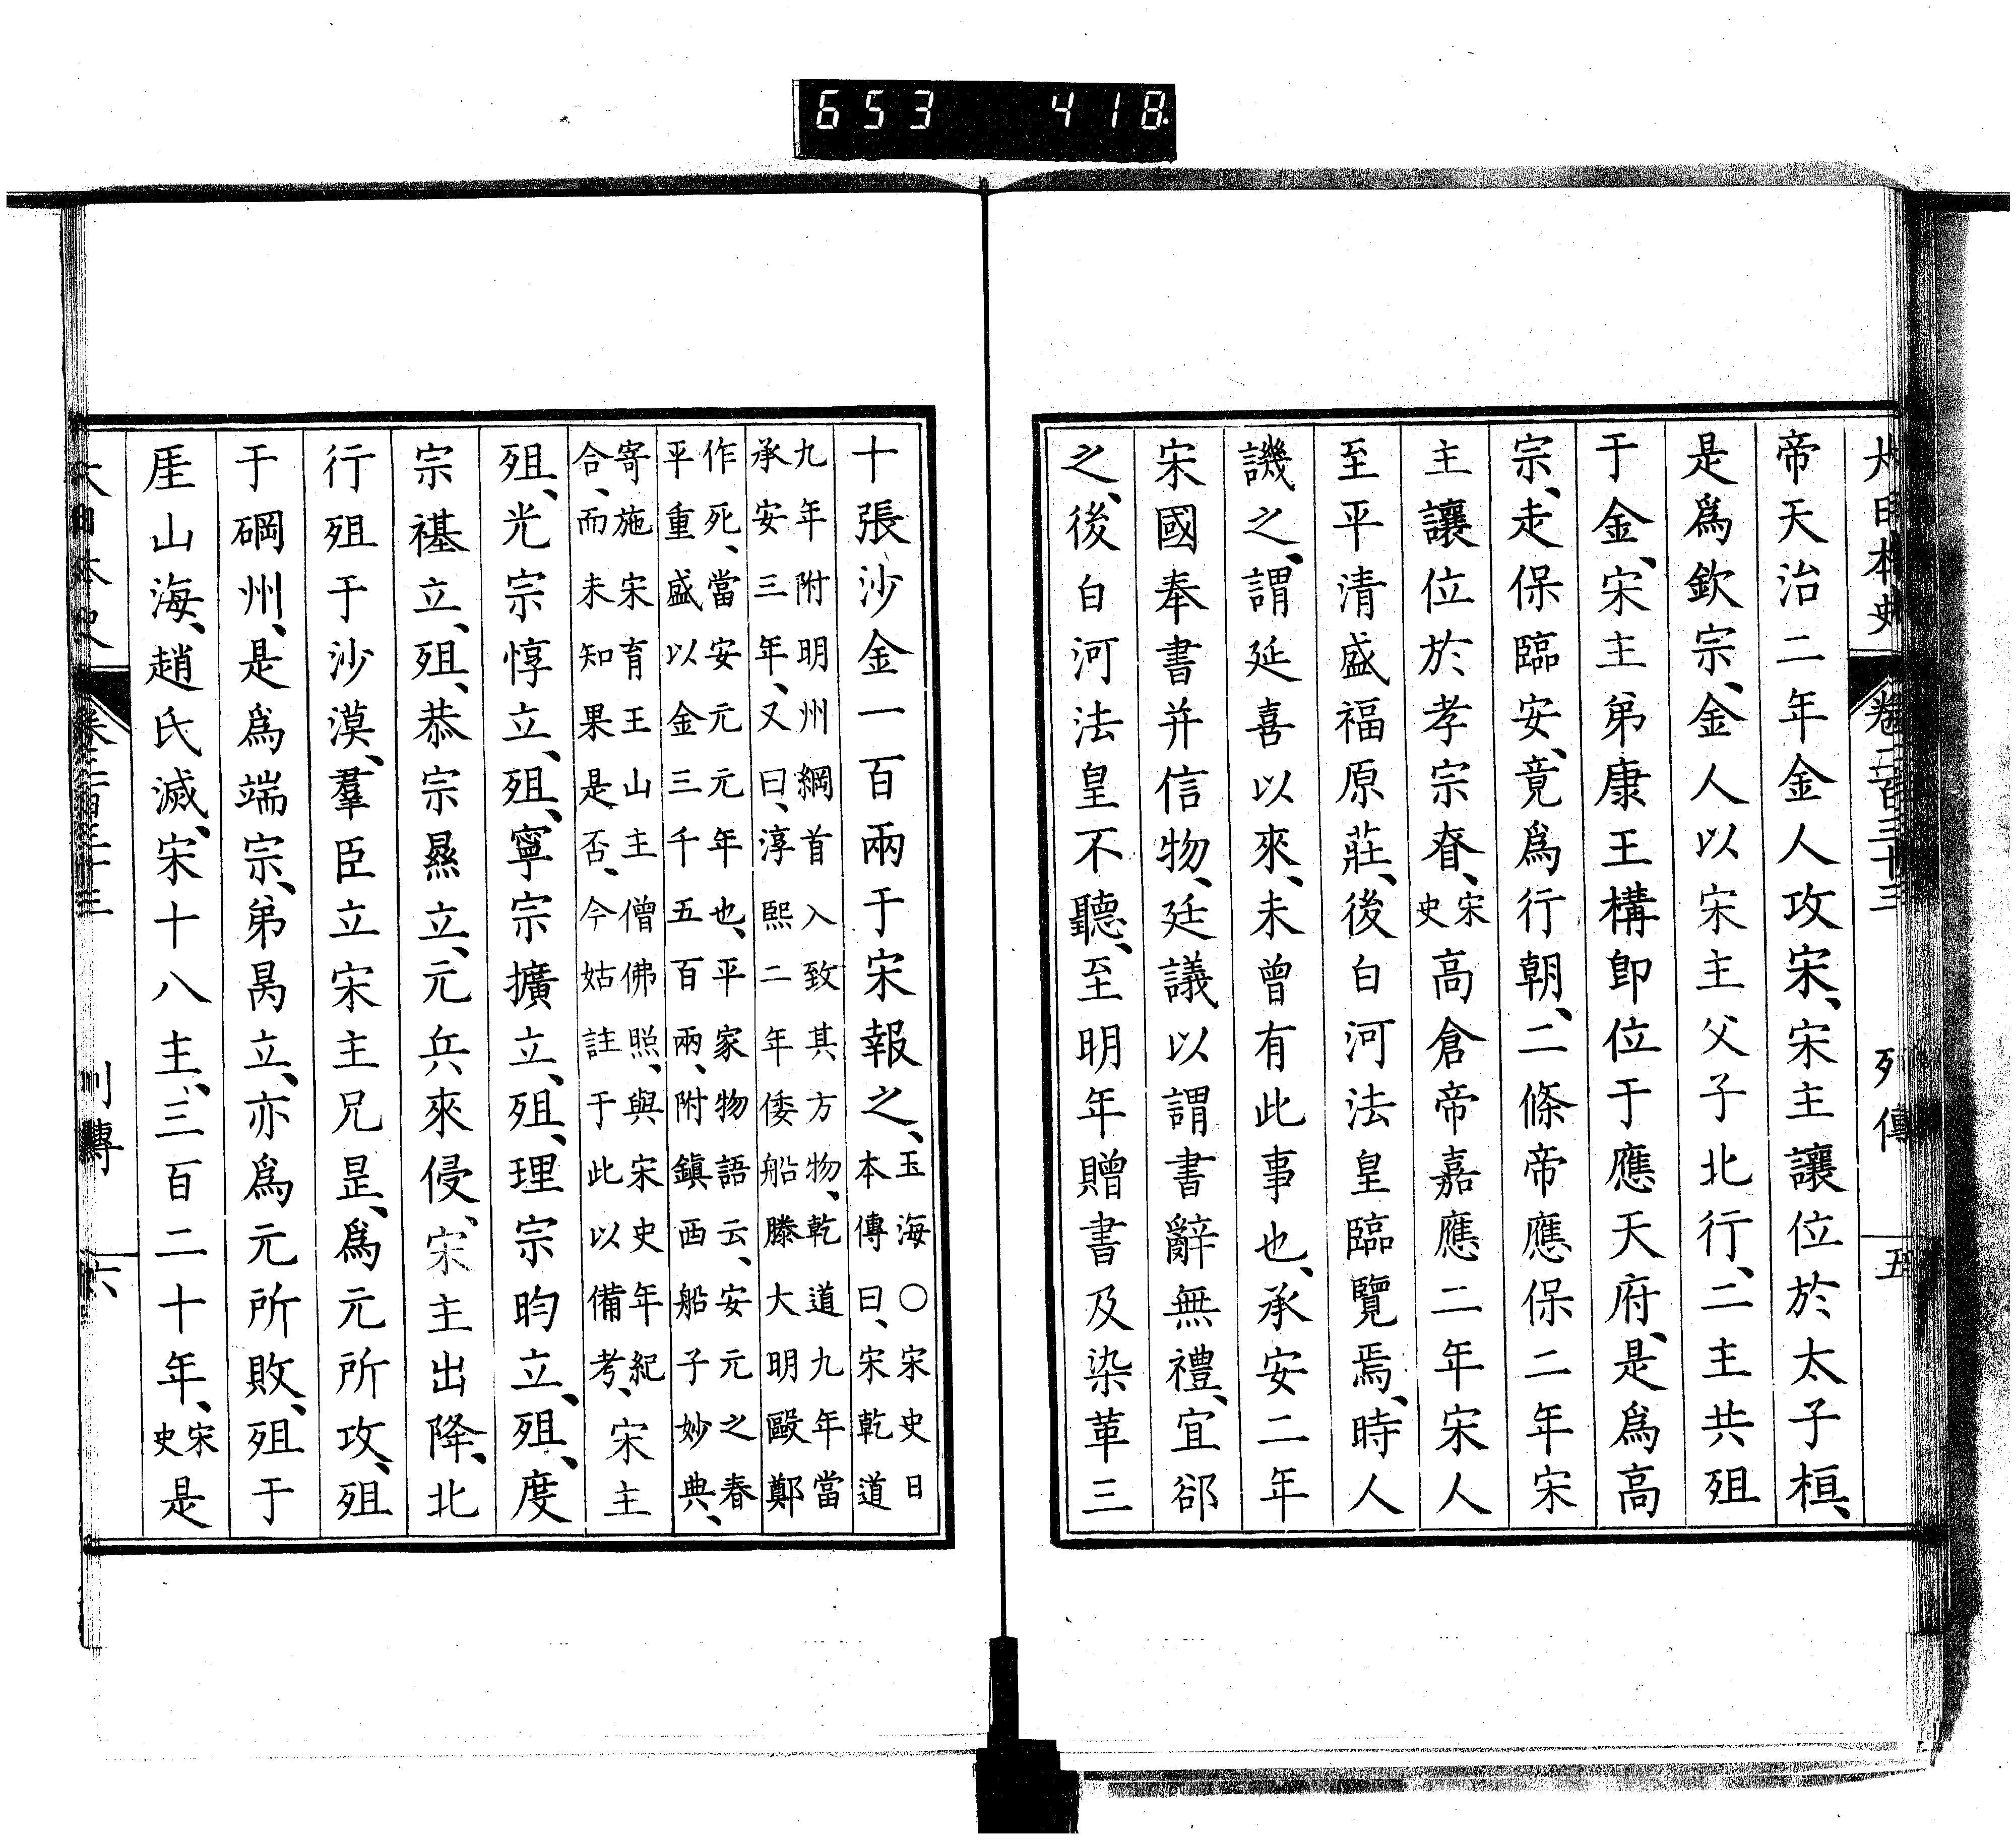 653 418
大日本史 卷二百三十三 列傳 五
帝天治二年金人攻宋、宋主讓位於太子桓、
是爲欽宗、金人以宋主父子北行、二主共殂
于金、宋主弟康王構卽位于應天府、是爲高
宗、走保臨安、竟爲行朝、二條帝應保二年宋
主讓位於孝宗眘、宋史高倉帝嘉應二年宋人
至平清盛福原莊、後白河法皇臨覽焉、時人
譏之、謂延喜以來、未曾有此事也、承安二年
宋國奉書并信物、廷議以謂書辭無禮、宜郤
之、後白河法皇不聽、至明年贈書及染革三
十張沙金一百兩于宋報之、玉海○宋史日本傳曰、宋乾道
九年附明州綱首入致其方物、乾道九年當
承安三年、又曰、淳熙二年倭船滕大明毆鄭
作死、當安元元年也、平家物語云、安元之春
平重盛以金三千五百兩、附鎭西船子妙典、
寄施宋育王山主僧佛照、與宋史年紀
合、而未知果是否、今姑註于此以備考、宋主
殂、光宗惇立、殂、寧宗擴立、殂、理宗昀立、殂、度
宗禥立、殂、恭宗㬎立、元兵來侵、宋主出降、北
行殂于沙漠、羣臣立宋主兄昰、爲元所攻、殂
于碙州、是爲端宗、弟昺立、亦爲元所敗、殂于
厓山海、趙氏滅、宋十八主、三百二十年、宋史是
大日本史 卷二百三十三 列傳 六